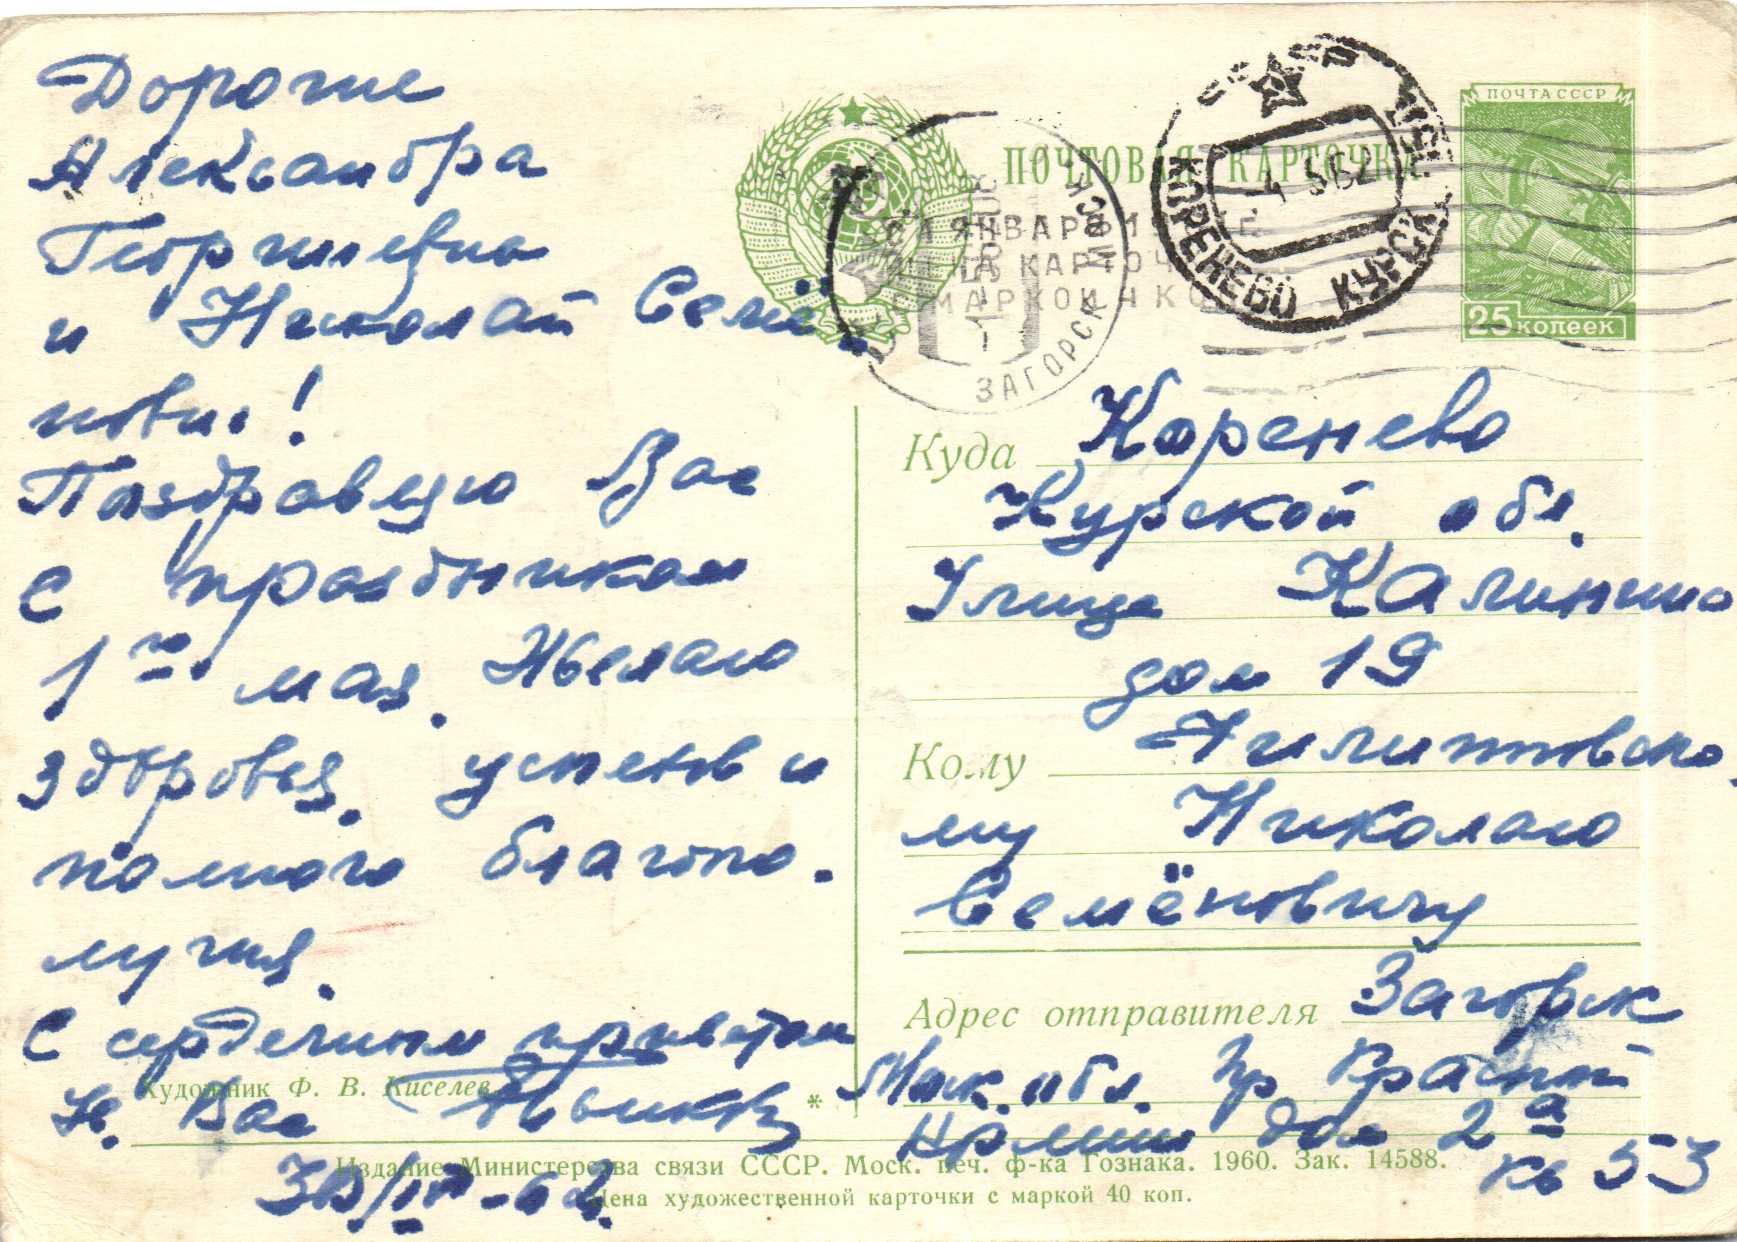 Дорогие
Александра
Георгиевна
и Николай Семё
нович!
Поздравляю Вас
с праздником
1го мая. Желаю
здоровья, успехов и
полного благопо-
лучия.
С сердечным приветом
к Вас
30/IV-62.
ПОЧТОВАЯ КАРТОЧКА
ПОЧТА СССР
25 копеек
КОРЕНЕВО КУРСК.
4 5 62
ЗАГОРСК МОСК
С 1 ЯНВАРЯ 1961 Г.
ЦЕНА КАРТОЧКИ
С МАРКОЙ 4 КОП.
Куда Коренево
Курской обл.
Улица Калинина
дом 19
Кому Филипповско-
му Николаю
Семёновичу
Адрес отправителя Загорск
Моск. обл. Пр Красной
Армии дом 2а
кв 53
Художник Ф. В. Киселев
*
Издание Министерства связи СССР. Моск. печ. ф-ка Гознака. 1960. Зак. 14588.
Цена художественной карточки с маркой 40 коп.